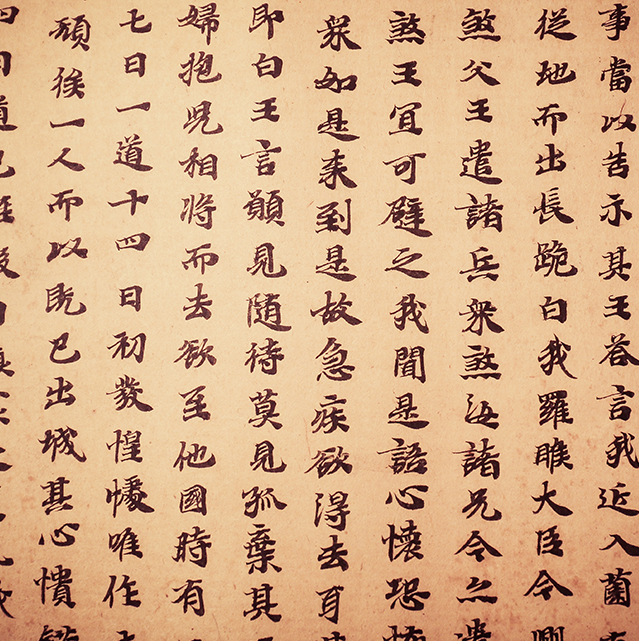 事當以告示其王荅言我近入薗
從地而出長跪白我羅睺大臣今
煞父王遣諸兵衆煞諸兄今
煞王宜可避之我聞是語心懷恐
衆如是来到是故急疾欲得去耳
即白王言願見随待莫見孤棄其
婦抱兒相將而去欲至他國時有
七日一道十四日初發惶懅唯作
一人而以既已出城其心憒
四日道已